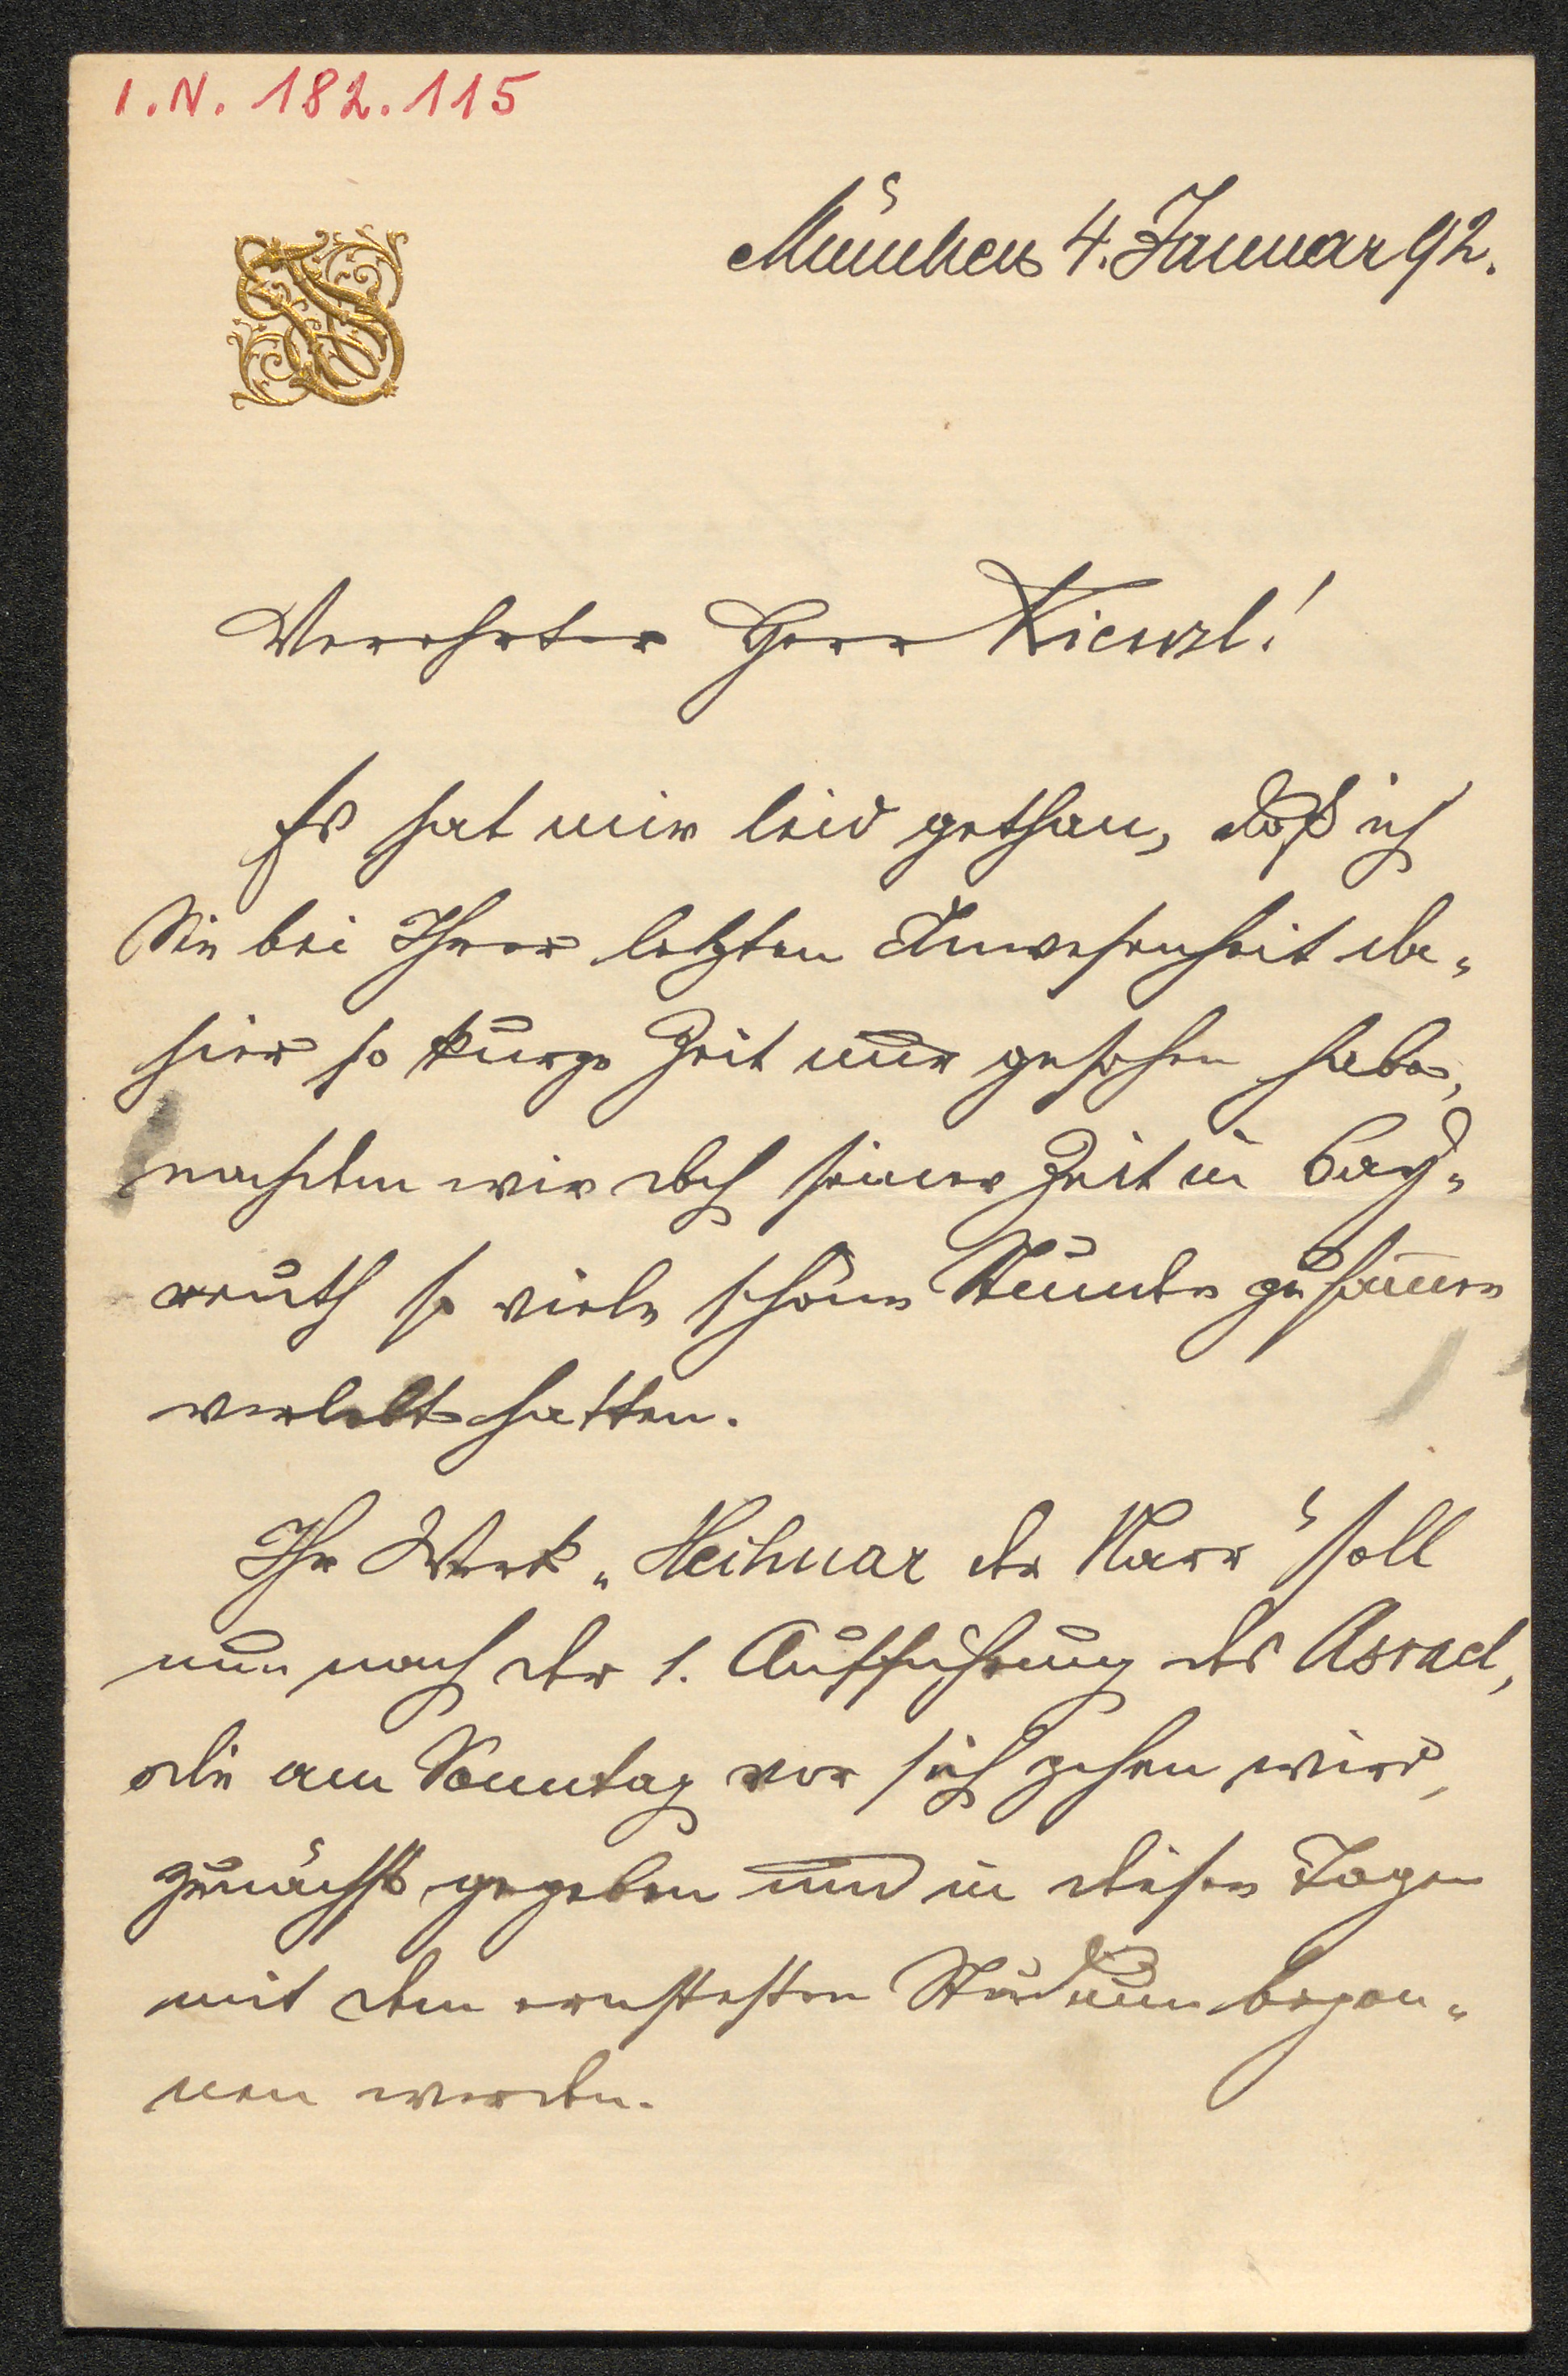 I.N. 182.115
München 4. Januar 92.
Verehrter Herr Kienzl!
Es hat mir leid gethan, daß ich
Sie bei Ihrer letzten Anwesenheit da„
hier so kurze Zeit nur gesehen habe,
nachdem wir doch seiner Zeit in Bay„
reuth so viele schöne Stunden zusam̅en
verlebt hatten.
Ihr Werk „Heilmar der Narr“ soll
nun nach der 1. Aufführung des Asrael,
die am Sonntag vor sich gehen wird,
zunächst gegeben und in diesen Tagen
mit dem ernstesten Studium begon„
nen werden.